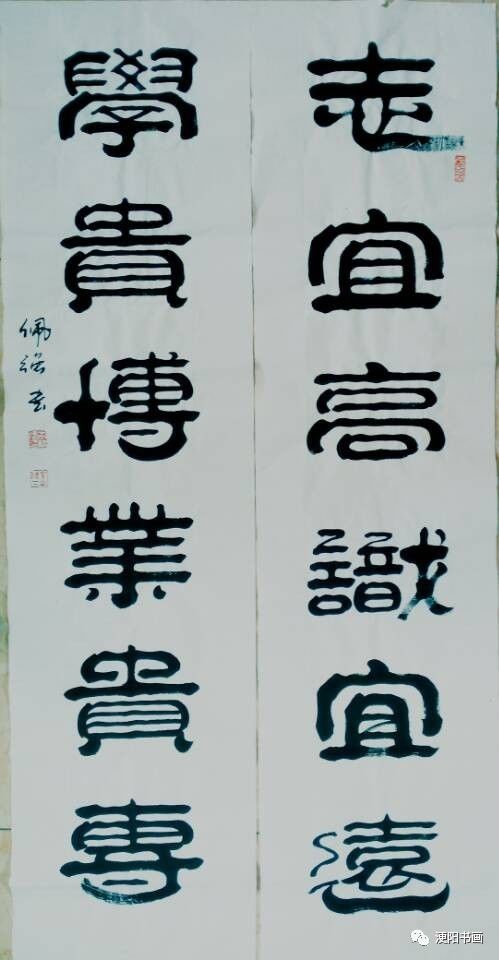 志宜高識宜遠
學貴博業貴專
佩强书
梗阳书画